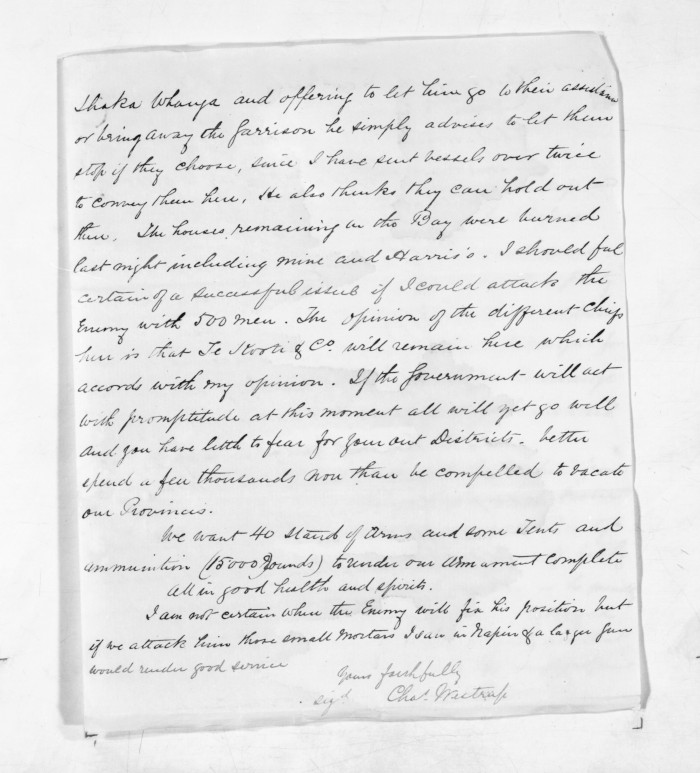 Ihaka Whanga and offering to let him go to their assistance
or bring away the Garrison he simply advises to let them
stop if they choose, since I have sent vessels over twice
to convey them here. He also thinks they can hold out
then. The houses remaining in the Bay were burned
last night including mine and Harris's. I should feel
certain of a successful issue if I could attack the
Enemy with 500 men. The opinion of the different Chiefs
here is that Te Kooti & Co. will remain here which
accords with my opinion. If the Government will act
with promptitude at this moment all will yet go well
and you have little to fear for your out Districts. better
spend a few thousands now than be compelled to vacate
our Provinces.
We want 40 Stand of Arms and some Tents and
ammunition (15000 Rounds) to render our armament complete
All in good health and spirits.
I am not certain when the Enemy will fix his position but
if we attack him those small Mortars I saw in Napier & a larger Gun
would render good service
Yours faithfully
sigd Chas. Westrup